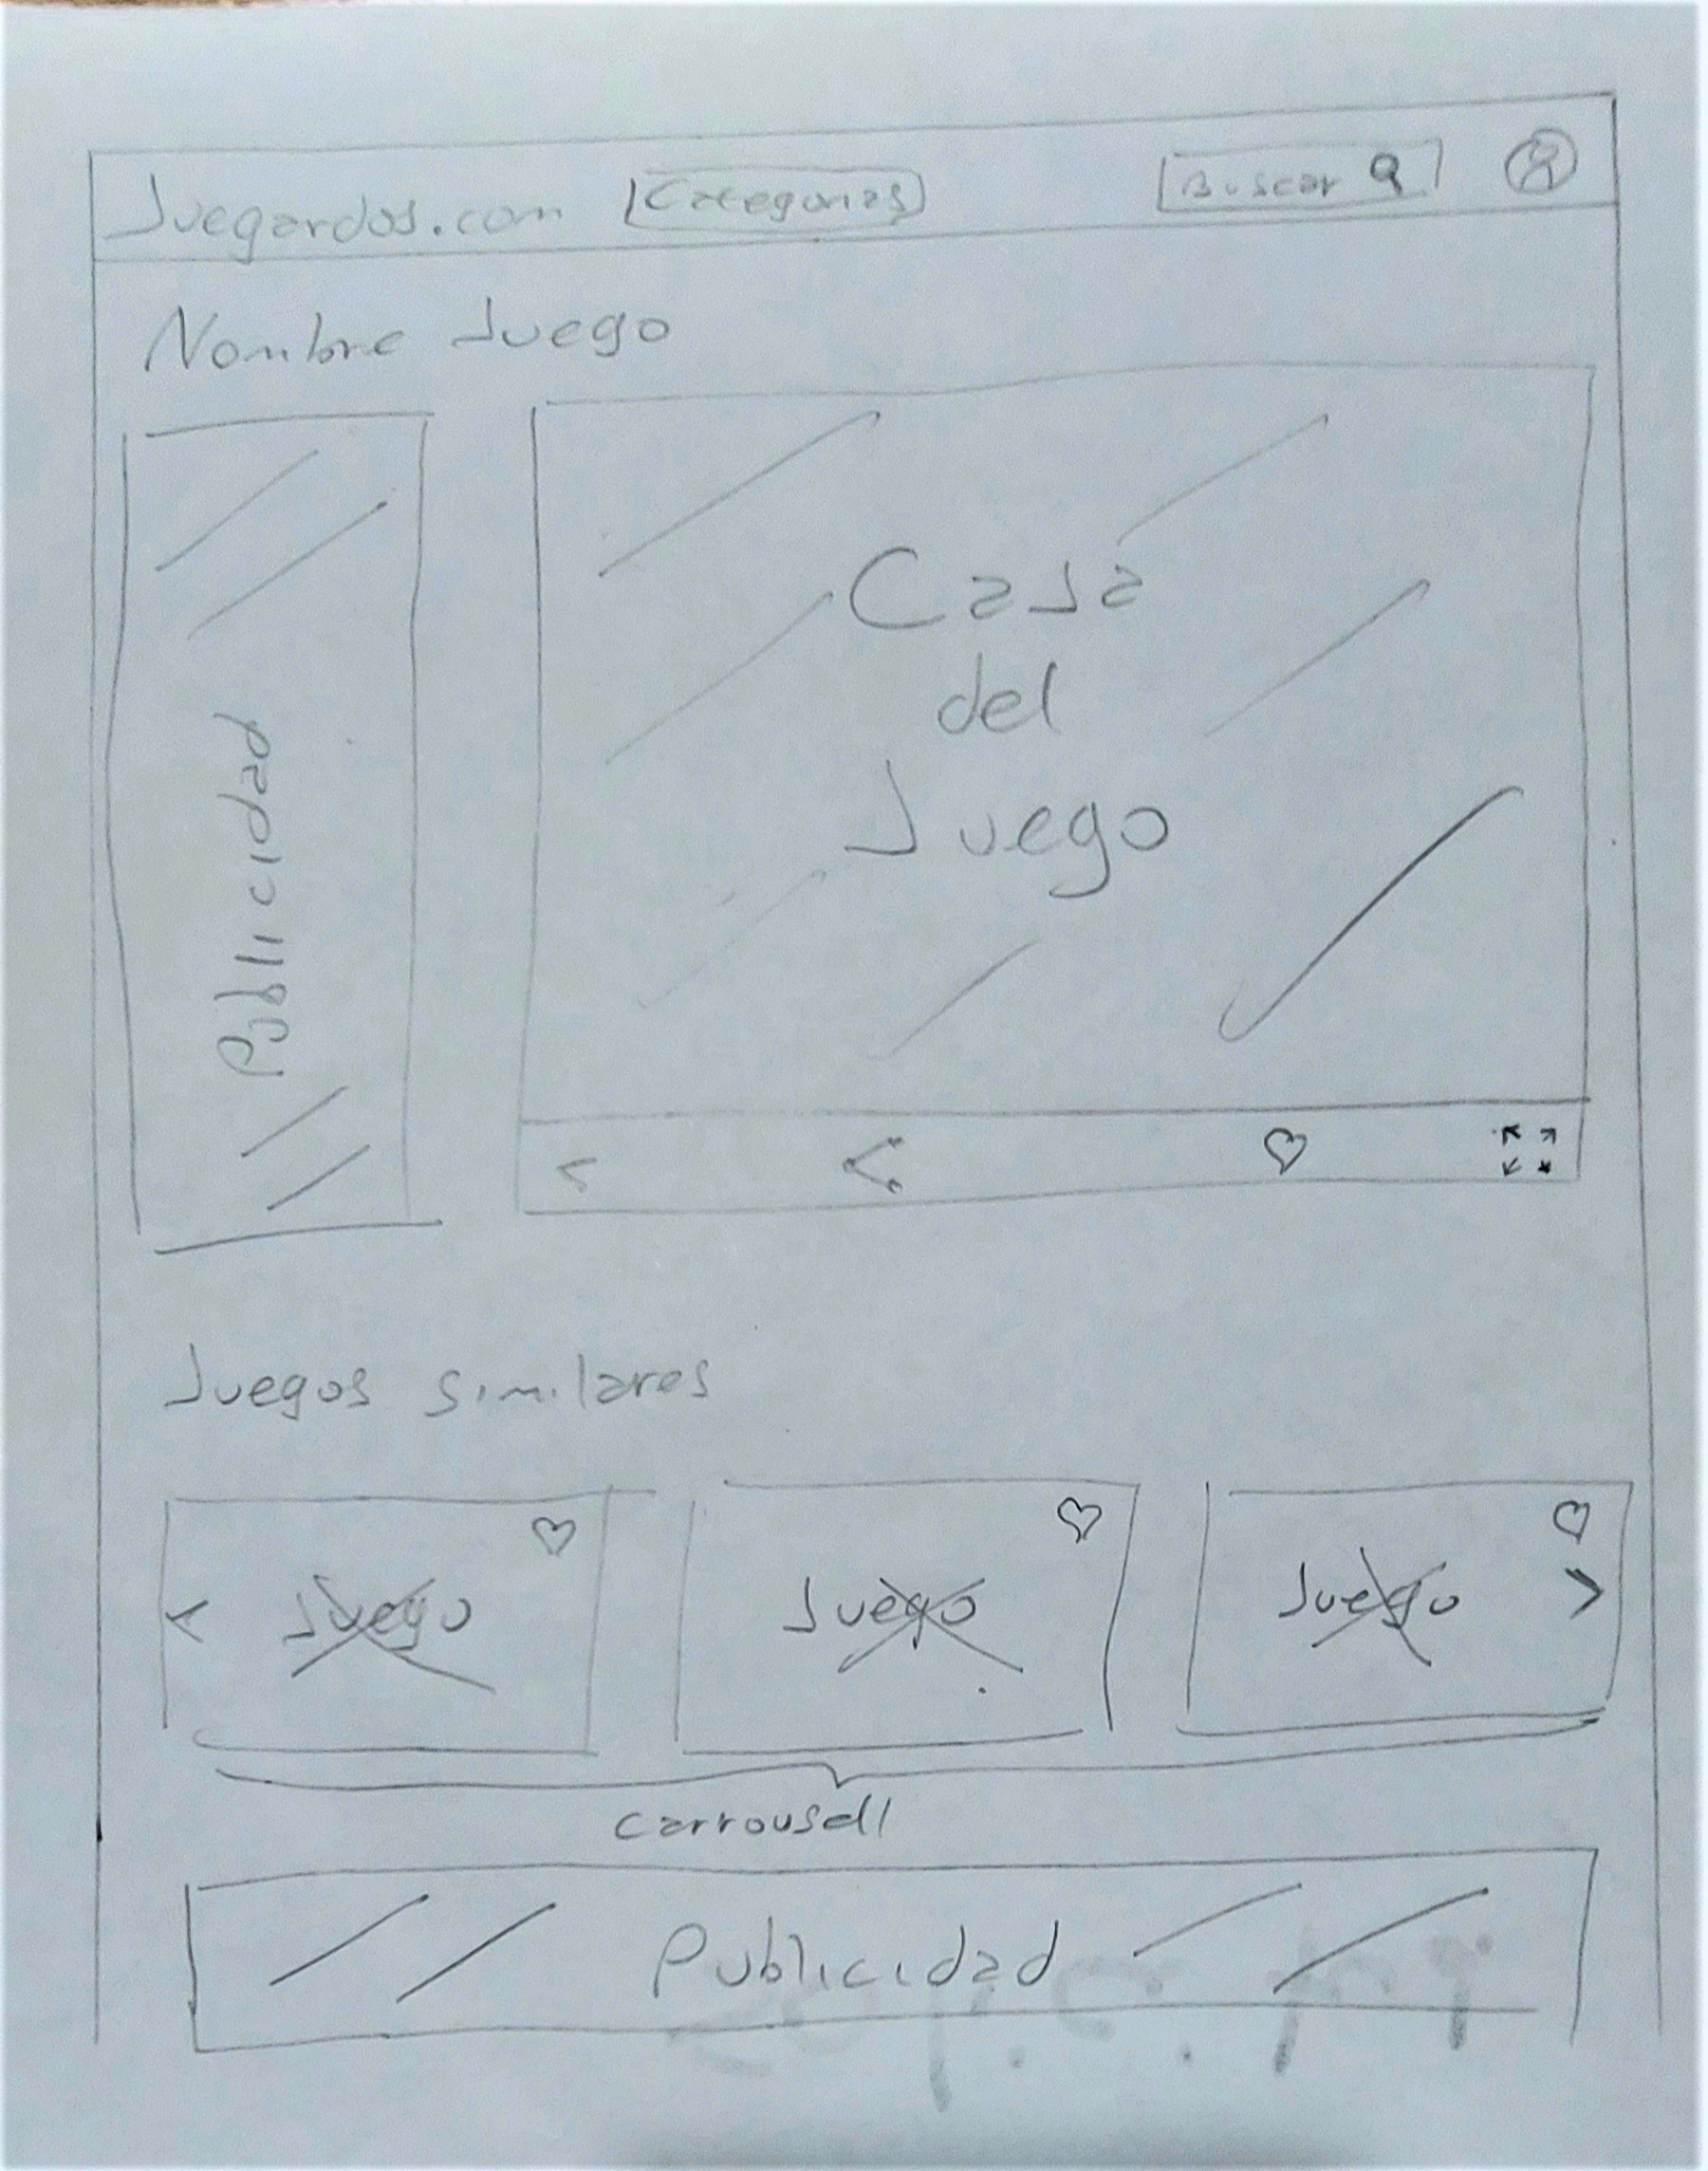 Juegardos.com Categorias Buscar
Nombre Juego
Publicidad
Casa
del
Juego
Juegos similares
Juego Juego Juego
Carrousell
Publicidad